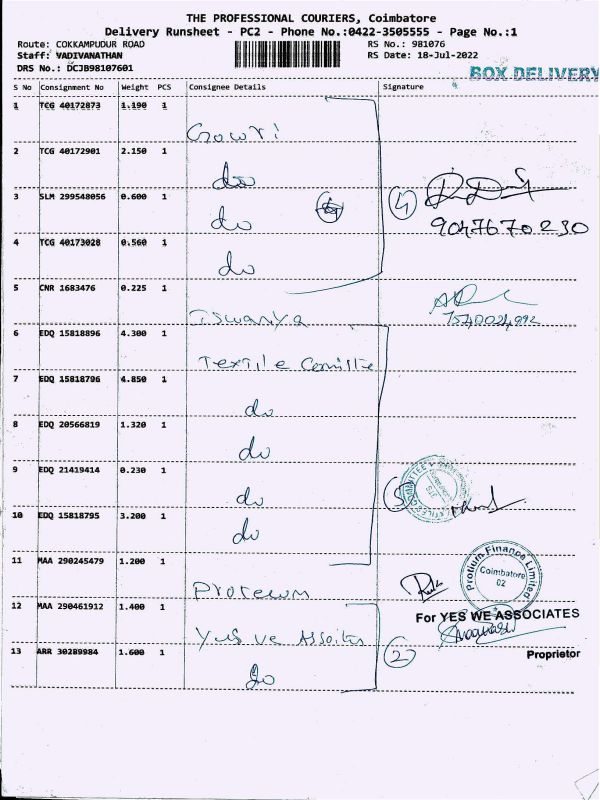 THE PROFESSIONAL COURIERS, Coimbatore
Delivery Runsheet - PC2 - Phone No.:0422-3505555 - Page No.:1
Route: COKKAMPUDUR ROAD
RS No.: 981076
Staff: VADIVANATHAN
RS Date: 18-Jul-2022
DRS No.: DCJB98107601
BOX DELIVERY
S No Consignment No Weight PCS Consignee Details Signature
1 TCG 40172873 1.190 1
Gowri
2 TCG 40172901 2.150 1
do
3 SLM 299548056 0.600 1
do
4
9047670230
4 TCG 40173028 0.560 1
do
5 CNR 1683476 0.225 1
Iswarya
6 EDQ 15818896 4.300 1
Textile Comitte
7 EDQ 15818796 4.850 1
do
8 EDQ 20566819 1.320 1
do
9 EDQ 21419414 0.230 1
do
5
10 EDQ 15818795 3.200 1
do
11 MAA 290245479 1.200 1
Proteum
Protium Finance Limited
Coimbatore
02
12 MAA 290461912 1.400 1
For YES WE ASSOCIATES
Yes we Assoites
13 ARR 30289984 1.600 1
2
Proprietor
do